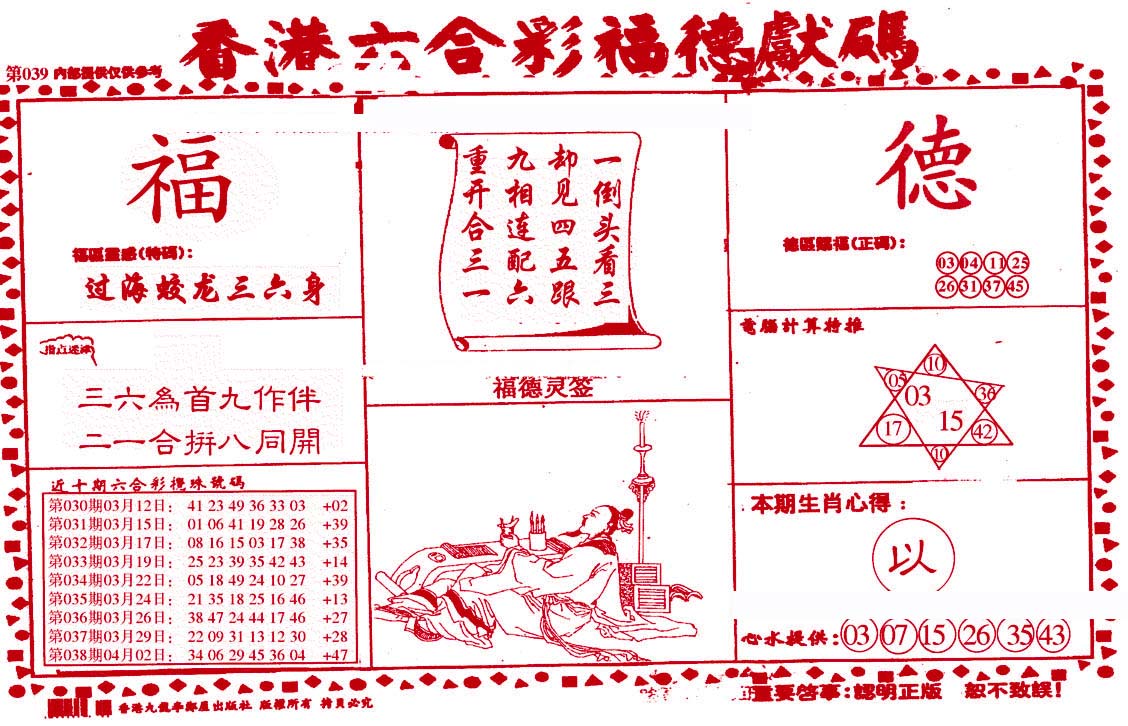 香港六合彩福德獻碼
第039 內部提供仅供参考
福
福區靈感(特碼):
过海蛟龙三六身
指点迷津
三六為首九作伴
二一合拼八同開
近十期六合彩攪珠號碼
第030期03月12日: 41 23 49 36 33 03 +02
第031期03月15日: 01 06 41 19 28 26 +39
第032期03月17日: 08 16 15 03 17 38 +35
第033期03月19日: 25 23 39 35 42 43 +14
第034期03月22日: 05 18 49 24 10 27 +39
第035期03月24日: 21 35 18 25 16 46 +13
第036期03月26日: 38 47 24 44 17 46 +27
第037期03月29日: 22 09 31 13 12 30 +28
第038期04月02日: 34 06 29 45 36 04 +47
一倒头看三
却见四五跟
九相连配六
重开合三一
福德灵签
德
德區賜福(正碼):
03 04 11 25
26 31 37 45
電腦計算特推
10
05
03
36
17
15
42
10
本期生肖心得:
以
心水提供: 03 07 15 26 35 43
重要啓事:認明正版 恕不致誤!
版權所有 拷貝必究